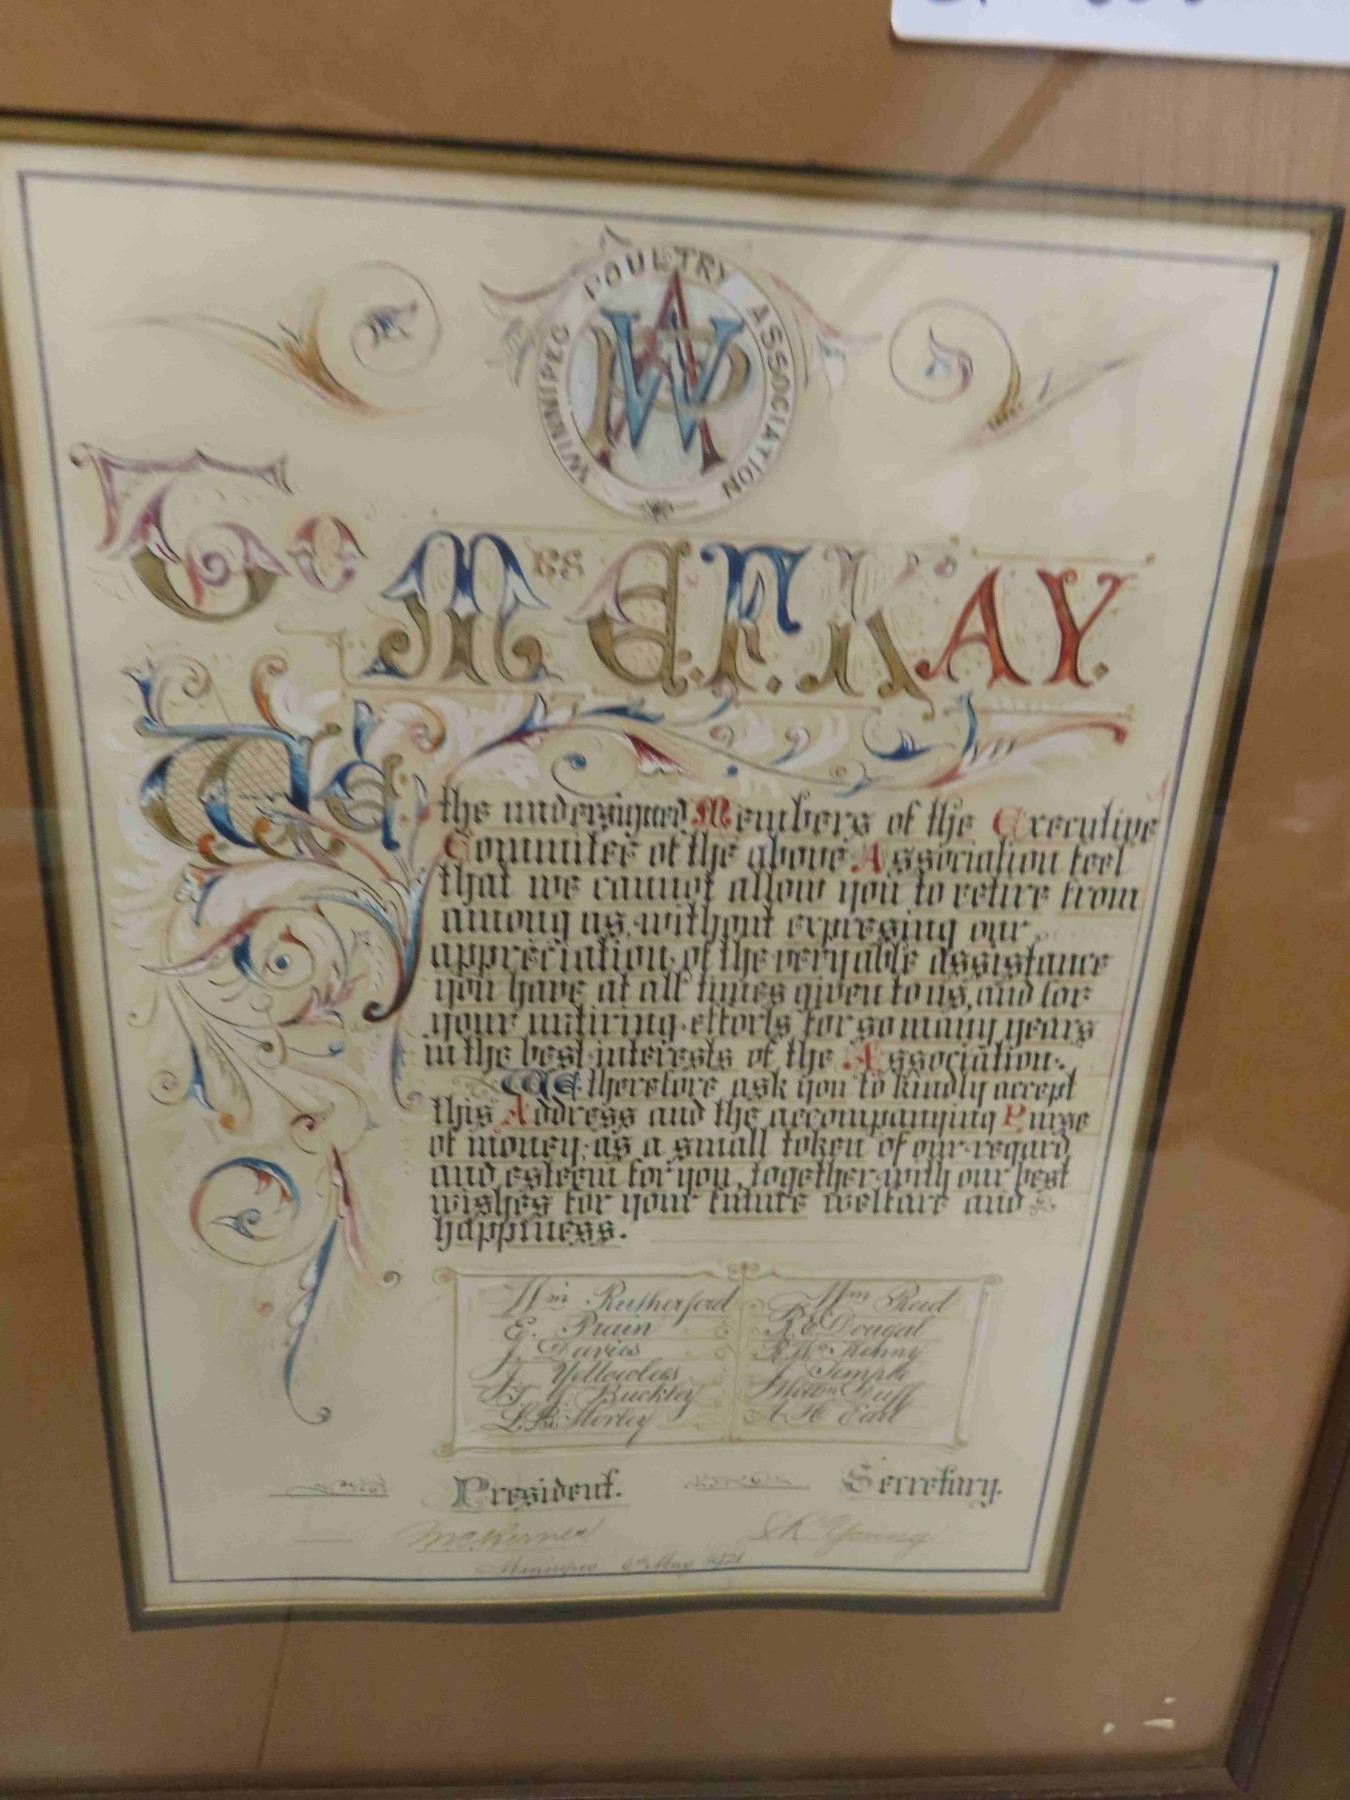 WINNIPEG POULTRY ASSOCIATION
WPA
To
MRS E. F. KAY
We
the undersigned Members of the Executive
Committee of the above Association feel
that we cannot allow you to retire from
among us, without expressing our
appreciation of the very able assistance
you have at all times given to us, and for
your untiring efforts for so many years
in the best interests of the Association.
We therefore ask you to kindly accept
this Address and the accompanying Purse
of money as a small token of our regard
and esteem for you, together with our best
wishes for your future welfare and
happiness.
Wm Rutherford
E. Prain
J. Davies
J. Yellowlees
Buckley
L. B. Morley
Wm Reid
R. E. Dougal
Kenny
Temple
A H Earl
President. Secretary.
Young
6th May